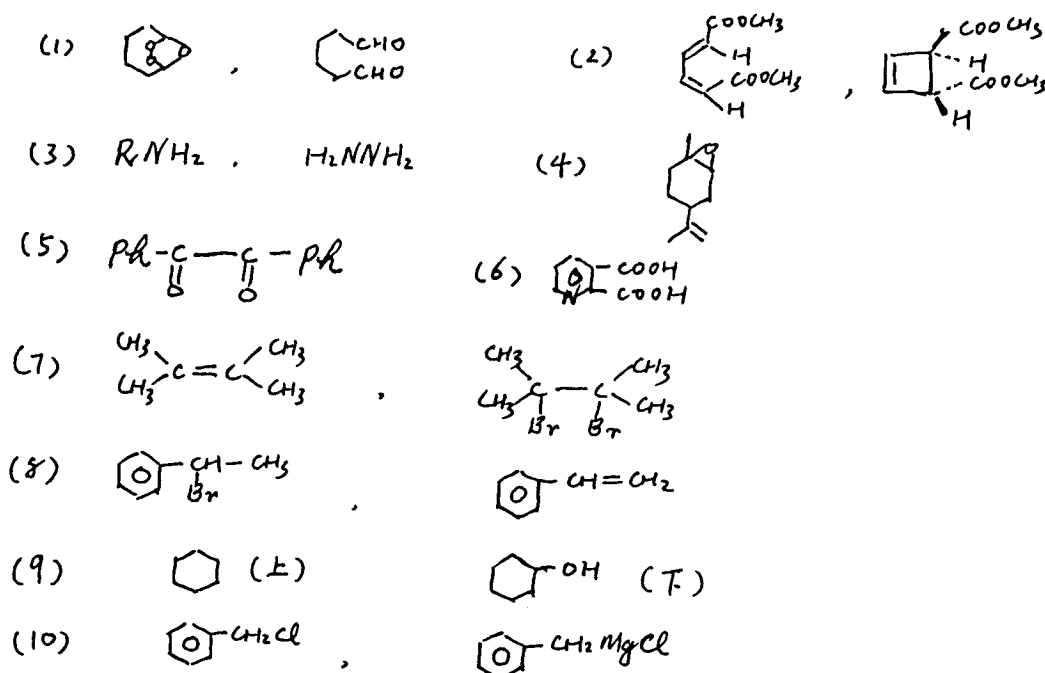 (1) , CHO CHO (2) COOCH3 H COOCH3 H , COOCH3 H COOCH3 H
(3) RNH2 , H2NNH2 (4) O
(5) Ph-C-C-Ph O O (6) N COOH COOH
(7) CH3 CH3 C=C CH3 CH3 , CH3 CH3 C-C CH3 CH3 Br Br
(8) CH-CH3 Br , CH=CH2
(9) (上) OH (下)
(10) CH2Cl , CH2MgCl